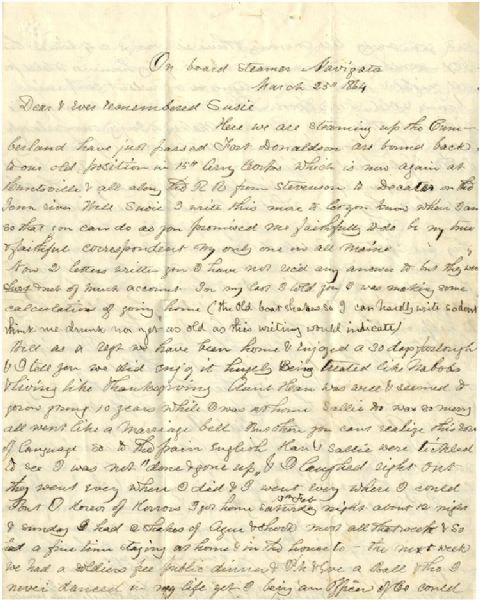 On board steamer Navigata
March 25th 1864
Dear & Ever remembered Susie
Here we are steaming up the Cum-
berland have just passed Fort Donaldson are bound back
to our old position in 15th Army Corps which is now again at
Huntsville & all along the R R from Stevenson to Decatur on the
Tenn river Well Susie I write this more to let you know where I am
so that you can do as you promised me faithfully to do be my true
& faithful correspondent my only one in all Maine
Now 2 letters written you I have not recd any answer to but they were
short & not of much account In my last I told you I was making some
calculation of going home (the old boat shakes so I can hardly write so dont
think me drunk nor yet as old as this writing would indicate)
Well as a Regt we have been home & Enjoyed a 30 day furlough
& I tell you we did enjoy it hugely Being treated like Nabobs
& living like thanksgiving Aunt Han was well & seemed to
grow young 10 years while I was at home Sallie too was so merry
all went like a marriage bell But then you cant realize this
of Language so to the plain English Han & Sallie were tickled
to see I was not "done & gone up" & I laughed right out
they went every where I did & I went every where I could
But O horror of Horrors I got home Saturday night about 12 night
5th Feb
& sunday I had 2 shakes of Ague & shook most all that week & so
had a fine time staying at home & in the house to – the next week
we had a soldiers free public dinner & Ball & tho I
never danced in my life yet I being an officer of Co could